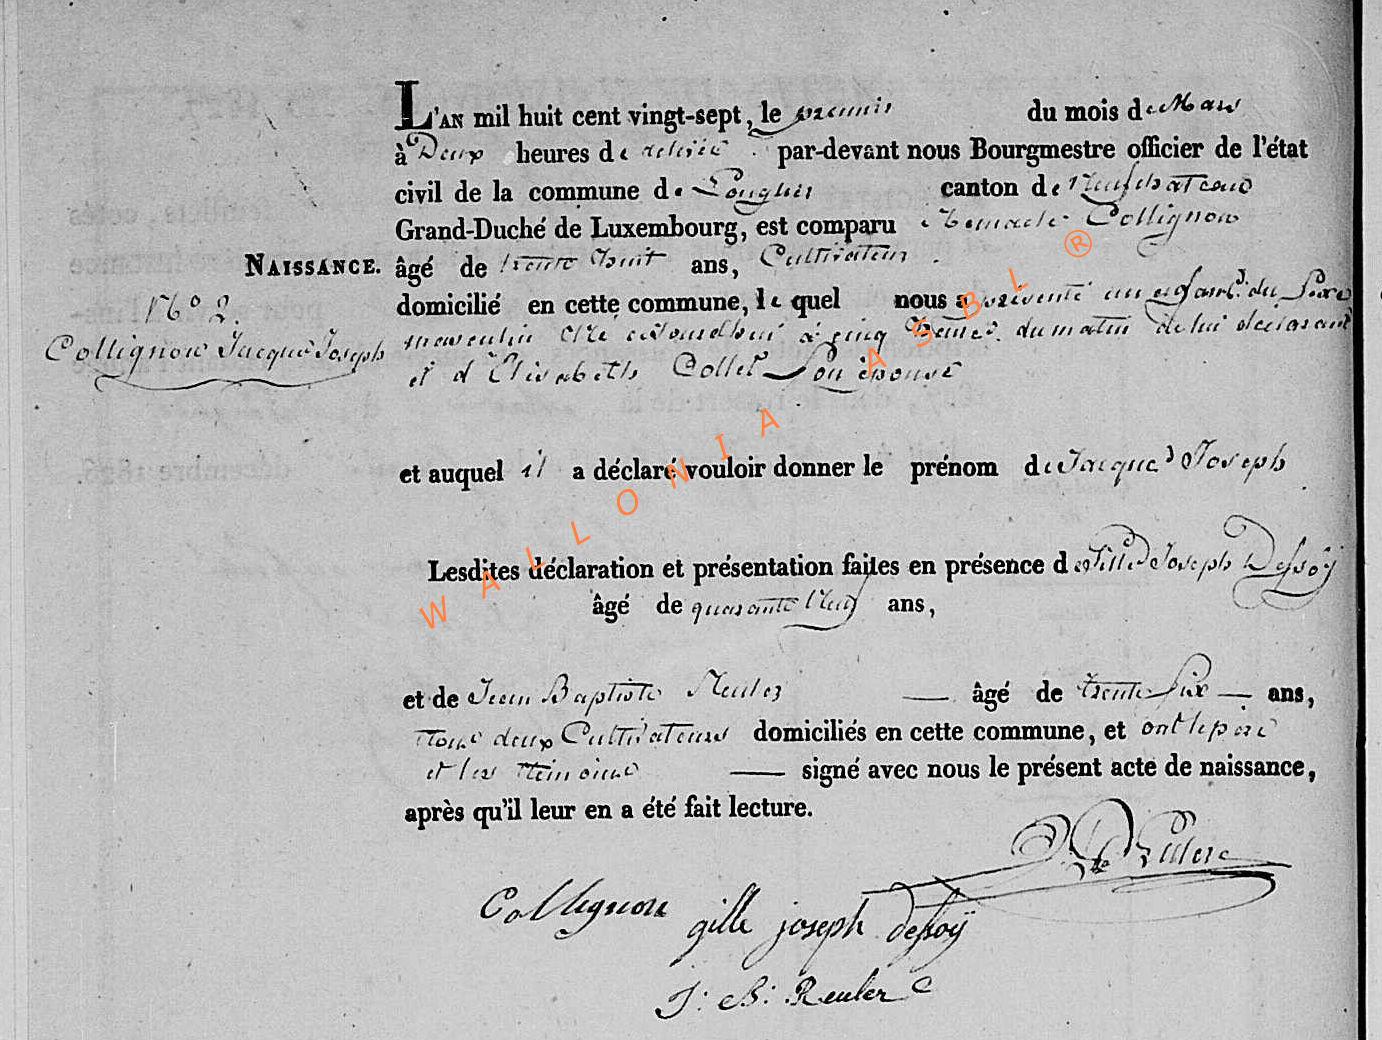 L'AN mil huit cent vingt-sept, le premier du mois de Mars
à Deux heures de relevée par-devant nous Bourgmestre officier de l'état
civil de la commune de Longlier canton de Neufchateau
Grand-Duché de Luxembourg, est comparu Collignon
NAISSANCE. âgé de trente huit ans, Cultivateur
domicilié en cette commune, le quel nous a présenté un enfant du Sexe
N.° 2.
masculin Né cejourdhui à cinq heures du matin de lui déclarant
Collignon Jacques Joseph
et d'Elisabeth Collet Son épouse
et auquel il a déclaré vouloir donner le prénom de Jacques Joseph
Lesdites déclaration et présentation faites en présence de Gille Joseph Dessoÿ
âgé de quarante Neuf ans,
et de Jean Baptiste Reuler — âgé de trente Six — ans,
Tous deux Cultivateurs domiciliés en cette commune, et ont le père
et les témoins — signé avec nous le présent acte de naissance,
après qu'il leur en a été fait lecture.
Collignon gille joseph dessoÿ
J: B: Reuler
WALLONIA ASBL ®